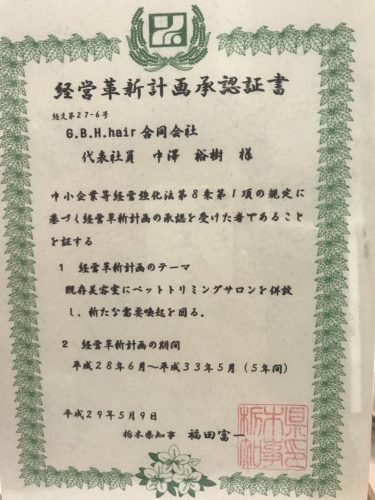 経営革新計画承認証書
経支第27-6号
G.B.H.hair合同会社
代表社員 中澤 裕樹 様
中小企業等経営強化法第8条第1項の規定に
基づく経営革新計画の承認を受けた者であること
を証する
1 経営革新計画のテーマ
既存美容室にペットトリミングサロンを併設
し、新たな需要喚起を図る。
2 経営革新計画の期間
平成28年6月〜平成33年5月(5年間)
平成29年5月9日
栃木県知事 福田富一
栃木県知事之印